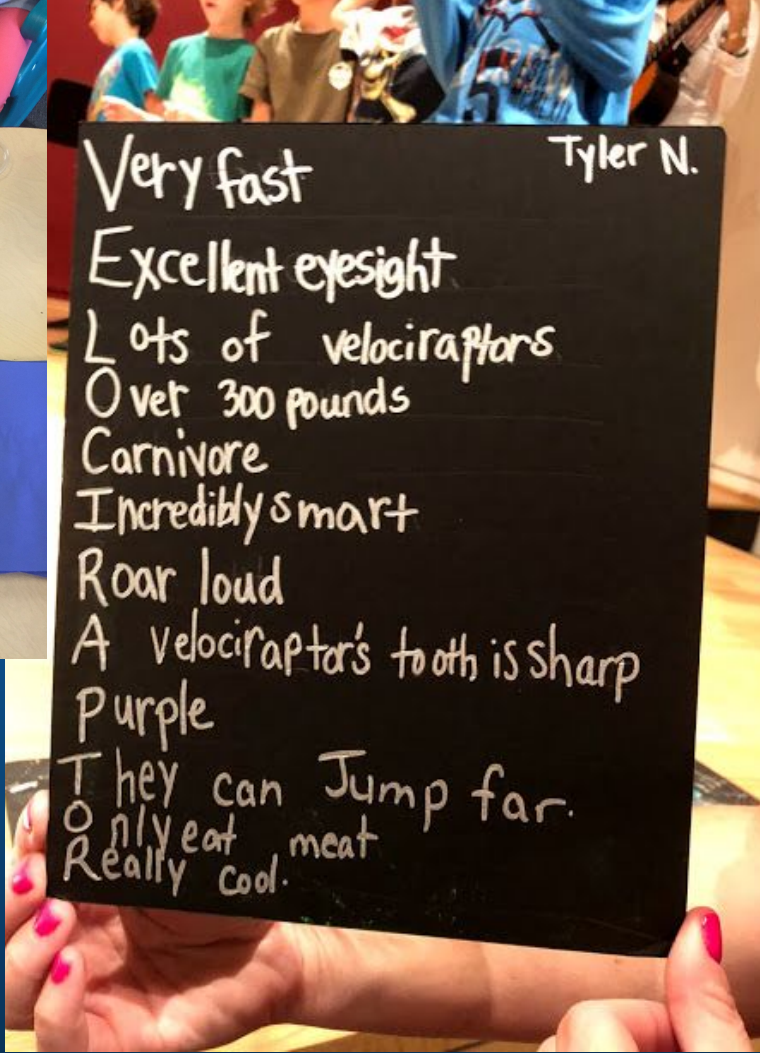 Tyler N.
Very fast
Excellent eyesight
Lots of velociraptors
Over 300 pounds
Carnivore
Incredibly smart
Roar loud
A velociraptor's tooth is sharp
Purple
They can Jump far.
Only eat meat
Really cool.